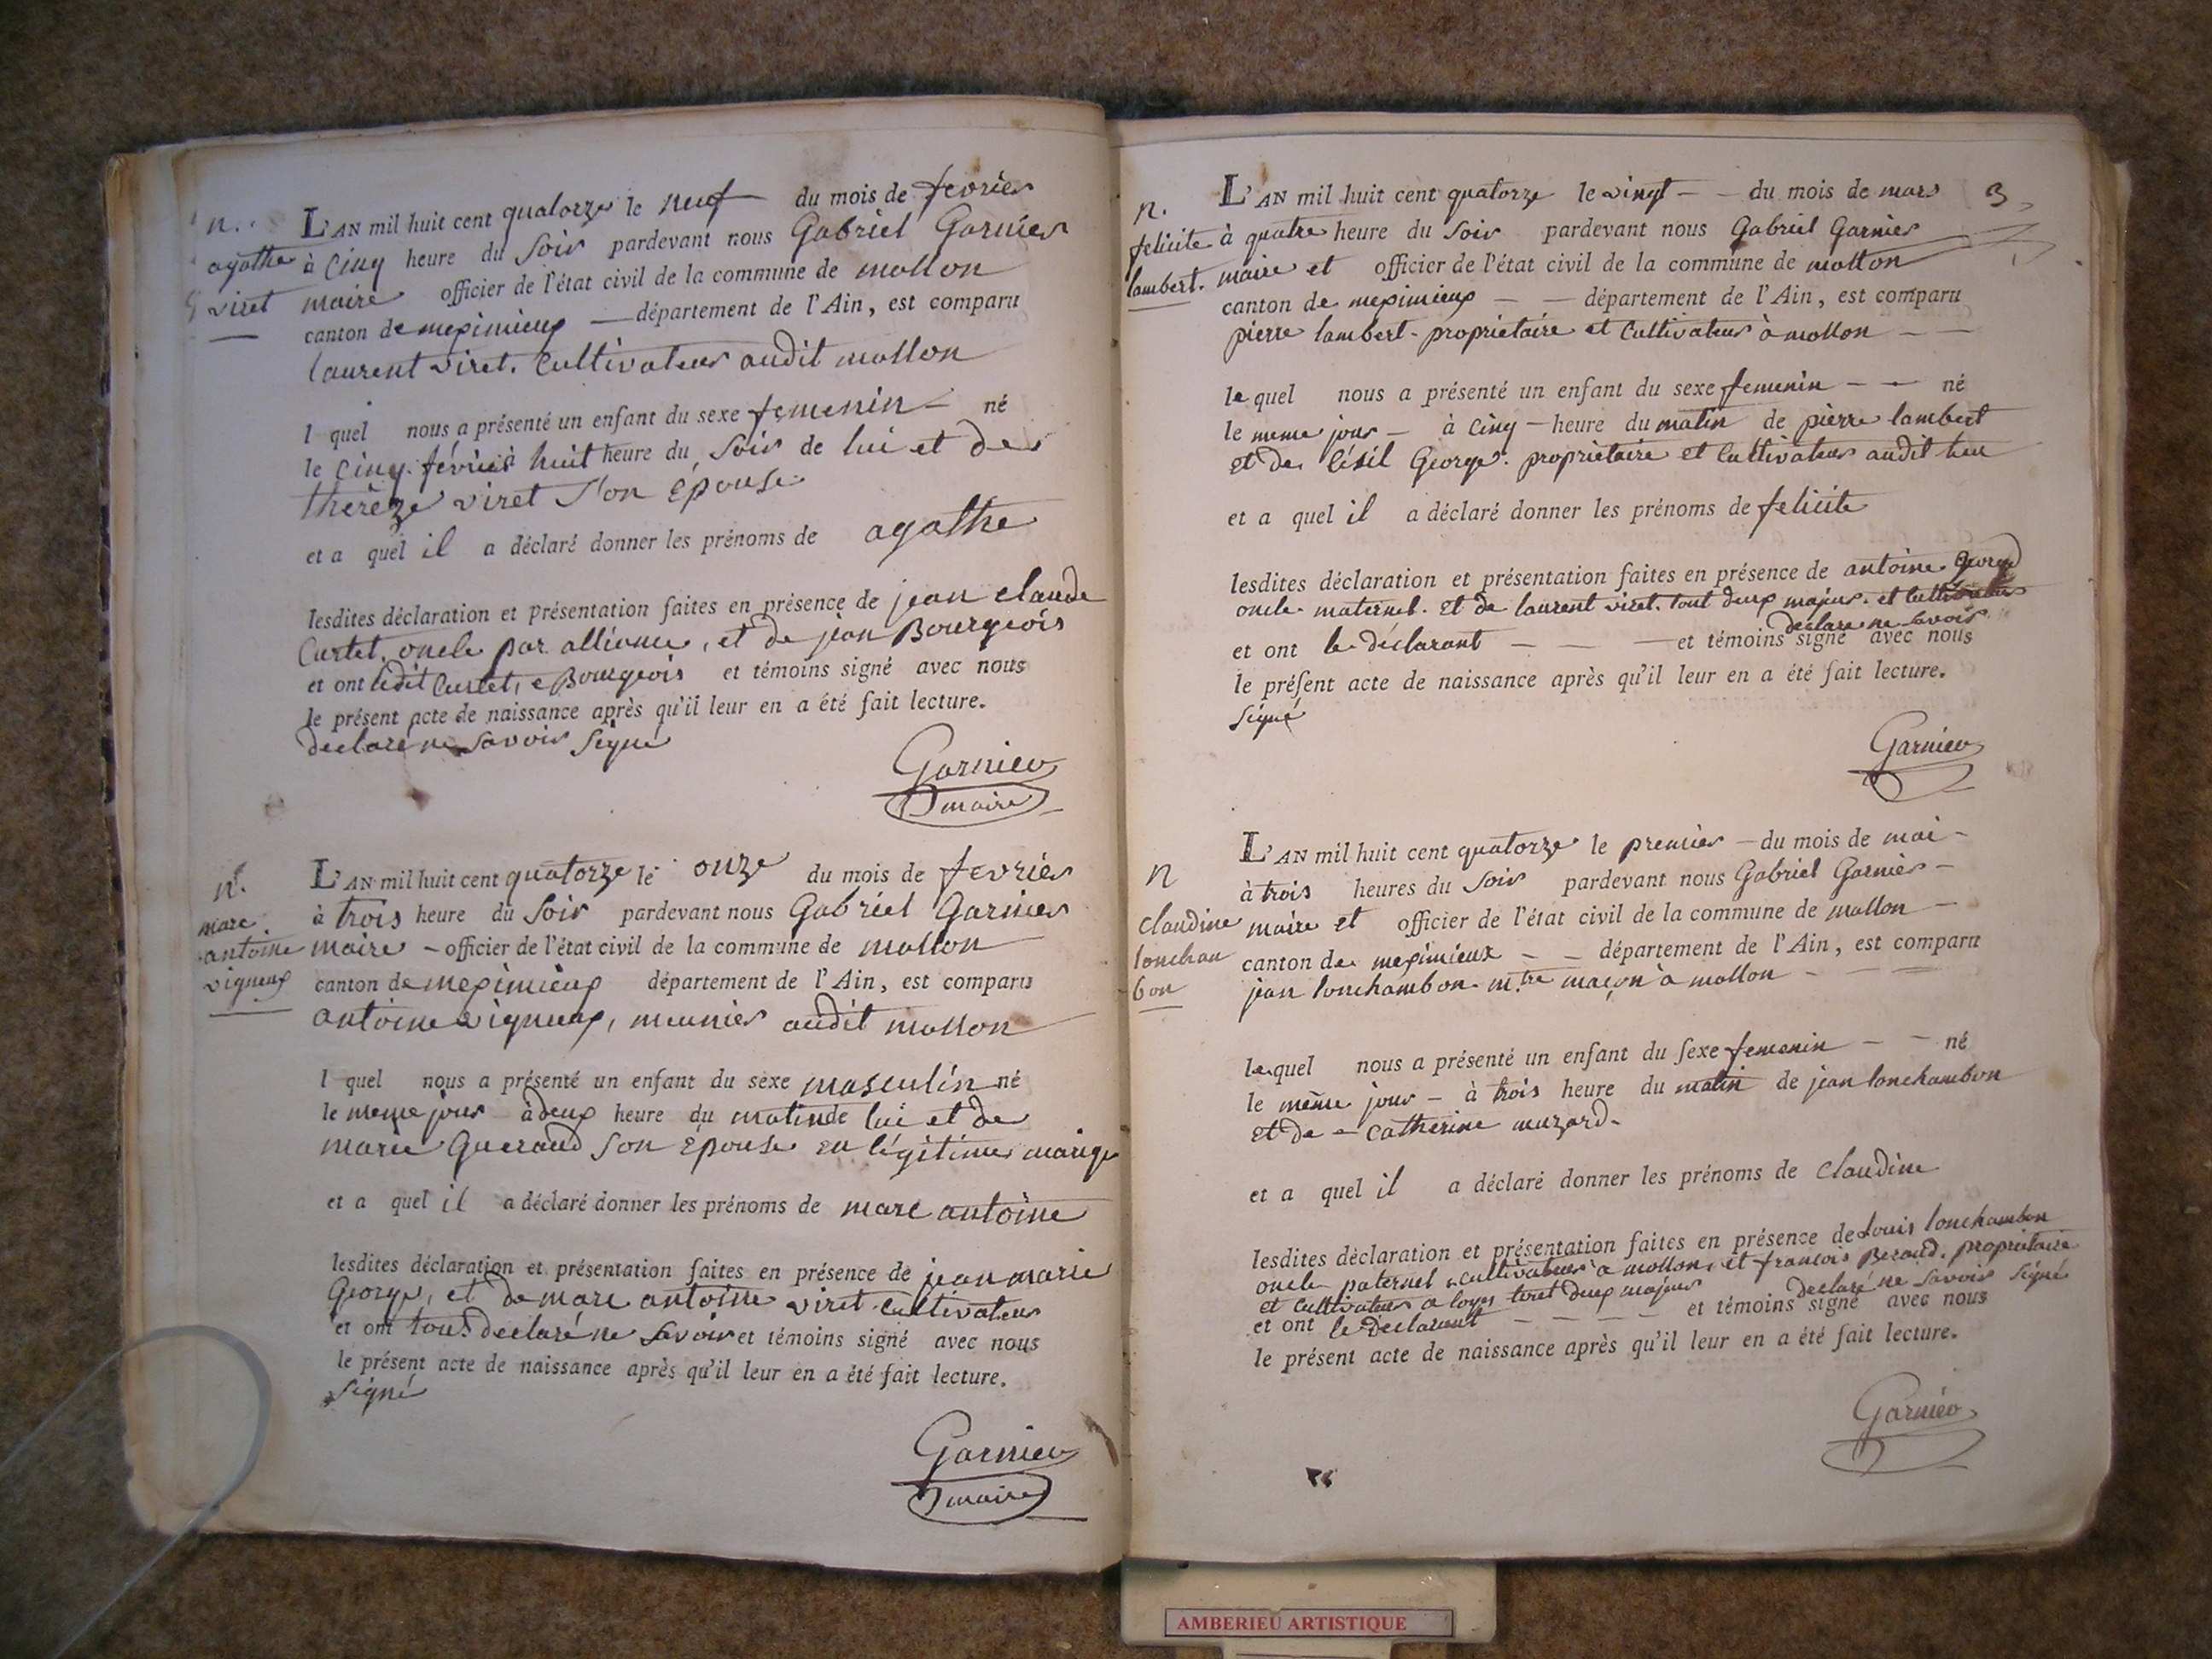 n.
agathe
viret
L'AN mil huit cent quatorze le neuf du mois de fevrier
à cinq heure du soir pardevant nous Gabriel Garnier
maire officier de l'état civil de la commune de mollon
canton de meximieux — département de l'Ain, est comparu
laurent viret. cultivateur audit mollon
l quel nous a présenté un enfant du sexe femenin — né
le cinq. févrierà huit heure du soir de lui et de
thérèze viret son épouse
et a quel il a déclaré donner les prénoms de agathe
lesdites déclaration et présentation faites en présence de jean claude
Curtet. oncle par alliance, et de jean Bourgeois
et ont ledit Curtet, e Bourgeois et témoins signé avec nous
le présent acte de naissance après qu'il leur en a été fait lecture.
declaré ne savoir signé
Garnier
maire
n.
marc
antoine
vigneux
L'AN mil huit cent quatorze le onze du mois de fevrier
à trois heure du soir pardevant nous Gabriel Garnier
maire — officier de l'état civil de la commune de mollon
canton de meximieux département de l'Ain, est comparu
antoine vigneux, meunier audit mollon
l quel nous a présenté un enfant du sexe masculin né
le meme jour à deux heure du matin de lui et de
marie Gueraud son épouse en légitime marige
et a quel il a déclaré donner les prénoms de marc antoine
lesdites déclaration et présentation faites en présence de jean marie
George, et de marc antoine viret cultivateur
et ont tous declaré ne savoir et témoins signé avec nous
le présent acte de naissance après qu'il leur en a été fait lecture.
signé
Garnier
maire
3
n.
felicite
lambert.
L'AN mil huit cent quatorze le vingt — — du mois de mars
à quatre heure du soir pardevant nous Gabriel Garnier
maire et officier de l'état civil de la commune de mollon
canton de meximieux — — département de l'Ain, est comparu
pierre lambert. propriétaire et cultivateur à mollon — —
le quel nous a présenté un enfant du sexe femenin — — né
le meme jour — à cinq — heure du matin de pierre lambert
et de Césil George. propriétaire et cultivateur audit lieu
et a quel il a déclaré donner les prénoms de felicite
lesdites déclaration et présentation faites en présence de antoine George
oncle maternel. et de laurent viret. tout deux majeur. et cultivateur
declare ne savoir
et ont le déclarant — — — et témoins signé avec nous
le présent acte de naissance après qu'il leur en a été fait lecture.
signé
Garnier
n
claudine
lonchan
bon
L'AN mil huit cent quatorze le premier — du mois de mai —
à trois heures du soir pardevant nous Gabriel Garnier —
maire et officier de l'état civil de la commune de mollon —
canton de meximieux — — département de l'Ain, est comparu
jean lonchambon. m.tre maçon à mollon — — —
le quel nous a présenté un enfant du sexe femenin — — né
le même jour — à trois heure du matin de jean lonchambon
et de — catherine muzard.
et a quel il a déclaré donner les prénoms de claudine
lesdites déclaration et présentation faites en présence de Louis lonchambon
oncle paternel cultivateur a mollon, et francois Beraud. propriétaire
et cultivateur a loyes tout deux majeur declaré ne savoir signé
et ont le declarant — — — — et témoins signé avec nous
le présent acte de naissance après qu'il leur en a été fait lecture.
Garnier
AMBERIEU ARTISTIQUE